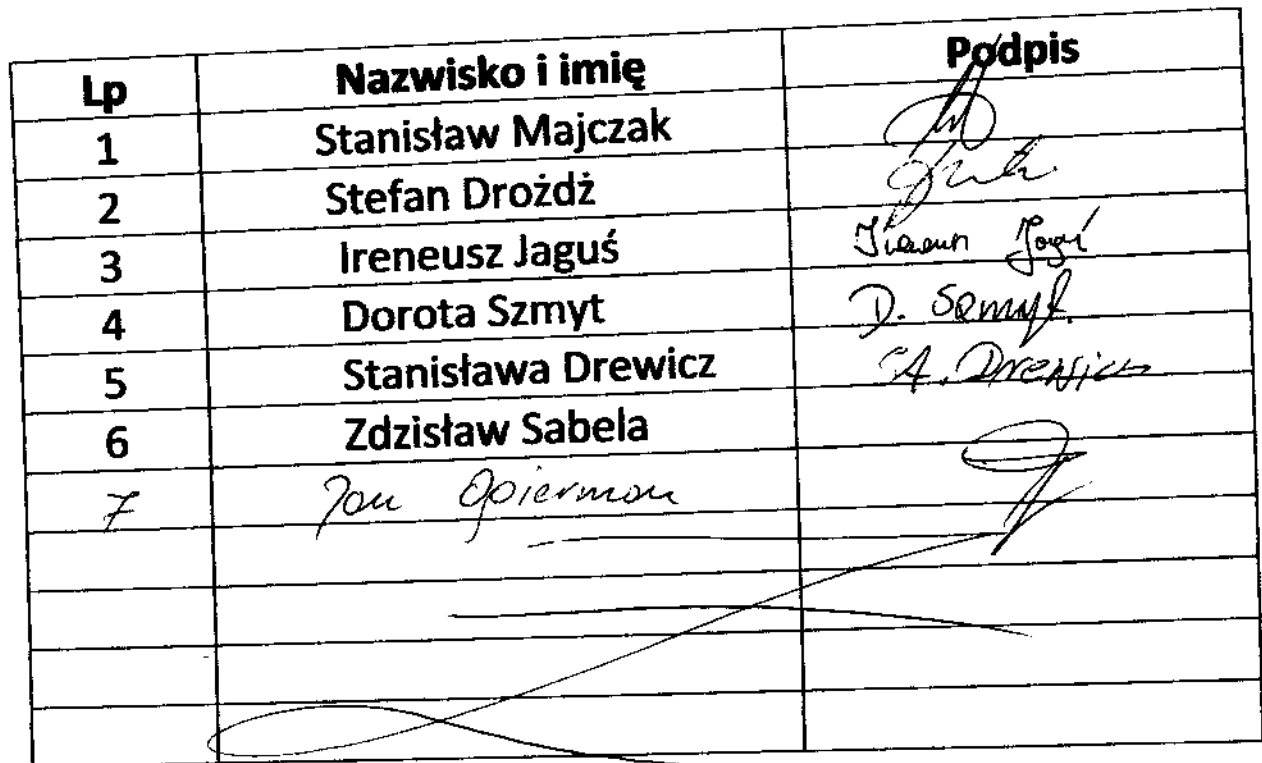 Lp Nazwisko i imię Podpis
1 Stanisław Majczak
2 Stefan Drożdż
3 Ireneusz Jaguś Ireneusz Jaguś
4 Dorota Szmyt D. Szmyt
5 Stanisława Drewicz ST. Drewicz
6 Zdzisław Sabela
7 Jan Opierman